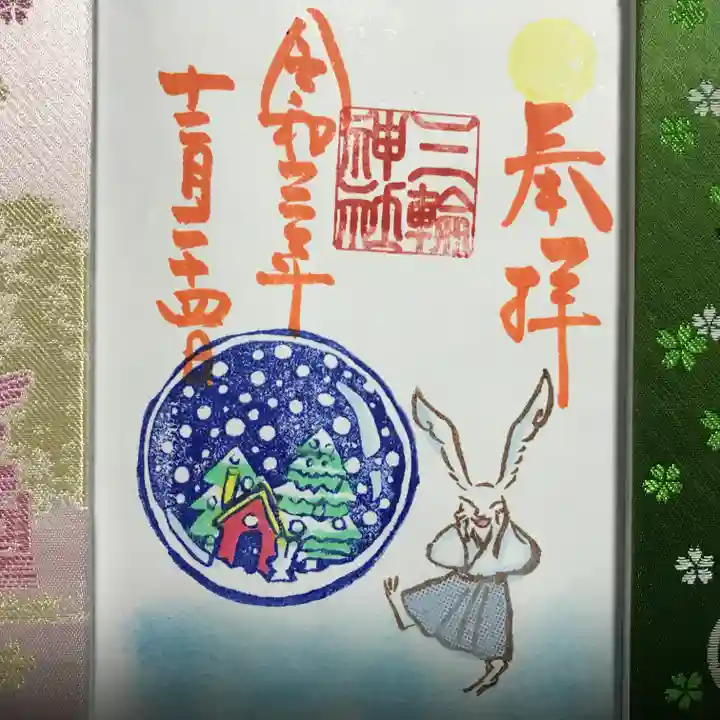 奉拝
三輪
神社
令和三年
十二月二十四日